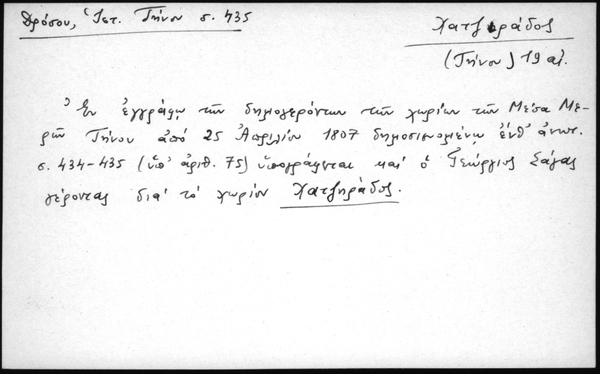 Δρόσου, Ἱστ. Τήνου σ. 435
Χατζηράδος
(Τήνου) 19 αἰ.
Ἐν ἐγγράφῳ τῶν δημογερόντων τῶν χωρίων τῶν Μέσα Με-
ρῶν Τήνου ἀπό 25 Ἀπριλίου 1807 δημοσιευομένῳ ἔνθ' ἀνωτ.
σ. 434-435 (ὑπ' ἀριθ. 75) ὑπογράφεται καί ὁ Γεώργιος Σάγας
γέροντας διά τό χωρίον Χατζηράδος.